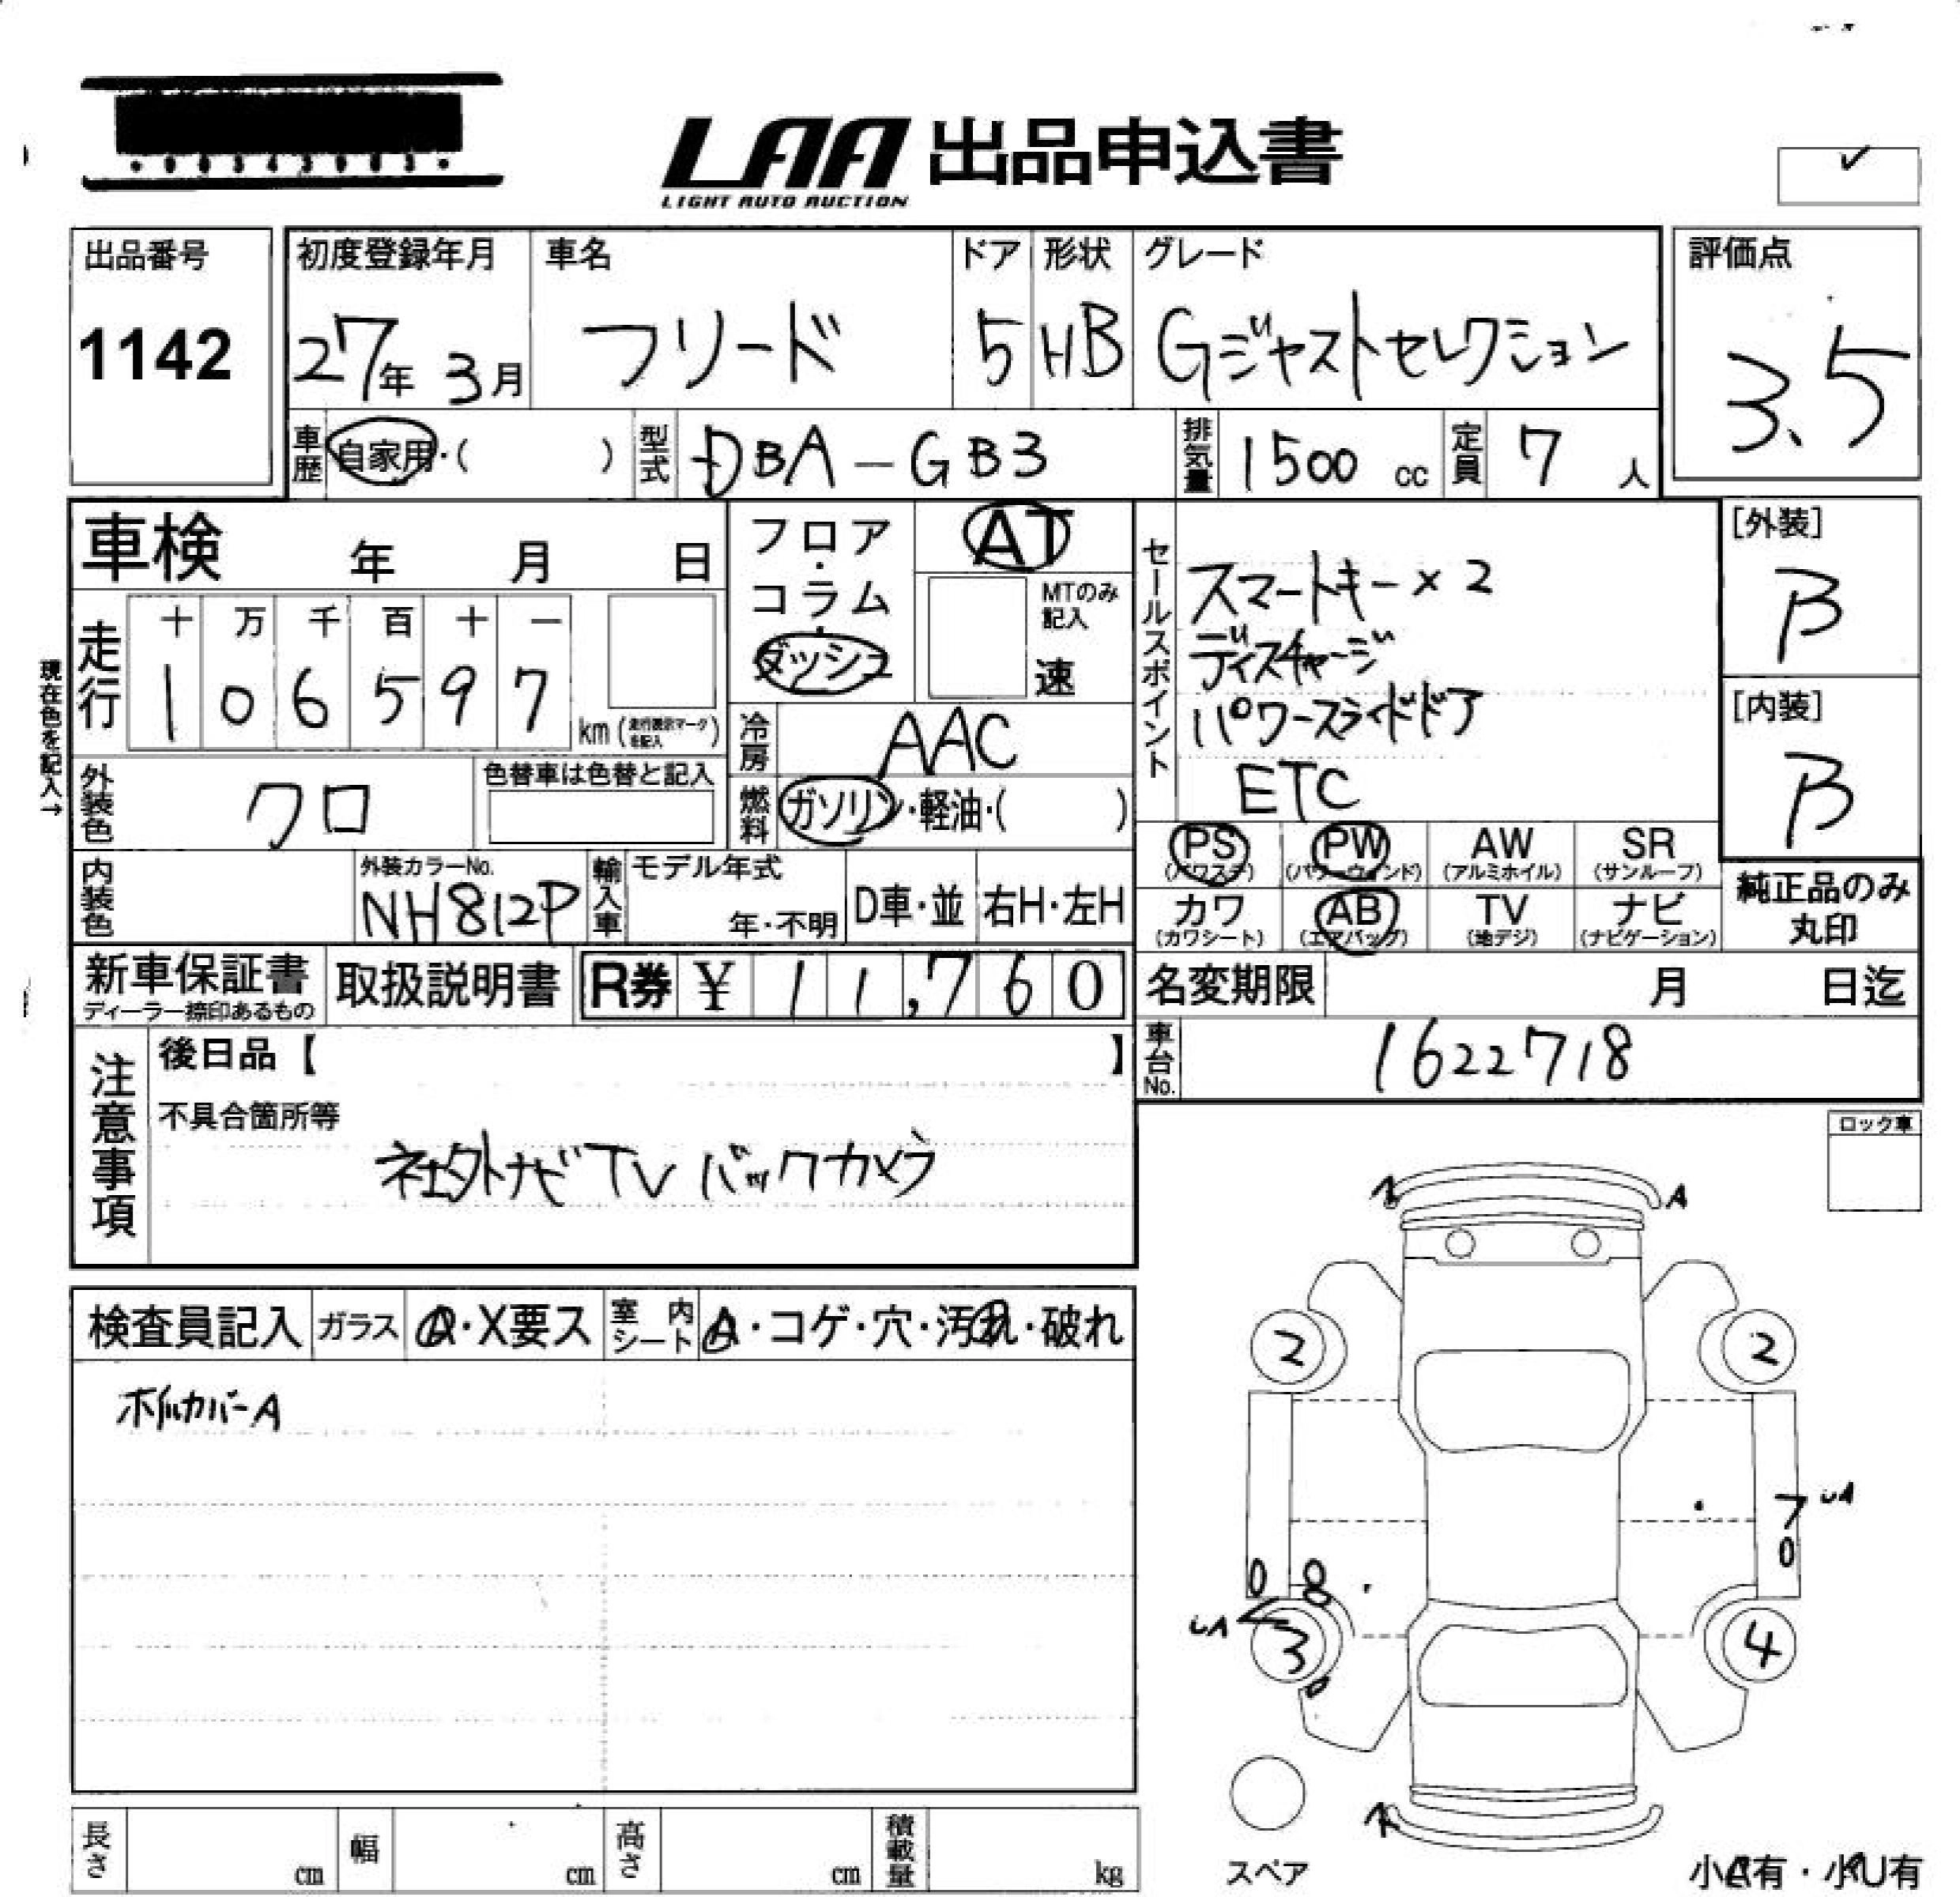 LAA 出品申込書
LIGHT AUTO AUCTION
出品番号
1142
初度登録年月
27年 3月
車名
フリード
ドア
5
形状
HB
グレード
Gジャストセレクション
評価点
3.5
車歴
自家用・( )
型式
DBA-GB3
排気量
1500 cc
定員
7 人
車検 年 月 日
フロア・コラム・ダッシュ
AT
MTのみ記入
速
セールスポイント
スマートキー×2
ディスチャージ
パワースライドドア
ETC
[外装]
B
[内装]
B
現在色を記入→
走行
十 万 千 百 十 一
1 0 6 5 9 7
km (走行表示マークを記入)
冷房
AAC
外装色
クロ
色替車は色替と記入
燃料
ガソリン・軽油・( )
PS (パワステ)
PW (パワーウィンド)
AW (アルミホイル)
SR (サンルーフ)
カワ (カワシート)
AB (エアバッグ)
TV (地デジ)
ナビ (ナビゲーション)
純正品のみ
丸印
内装色
外装カラーNo.
NH812P
輸入車
モデル年式
年・不明
D車・並
右H・左H
新車保証書
ディーラー捺印あるもの
取扱説明書
R券 ¥ 11,760
名変期限 月 日迄
車台No.
1622718
注意事項
後日品【 】
不具合箇所等
社外ナビTV バックカメラ
ロック車
検査員記入
ガラス
A・X要ス
室内シート
A・コゲ・穴・汚れ・破れ
ホイルカバーA
A
2
2
7
UA
0
0
8
UA
3
4
スペア
長さ cm
幅 cm
高さ cm
積載量 kg
小A有・小U有